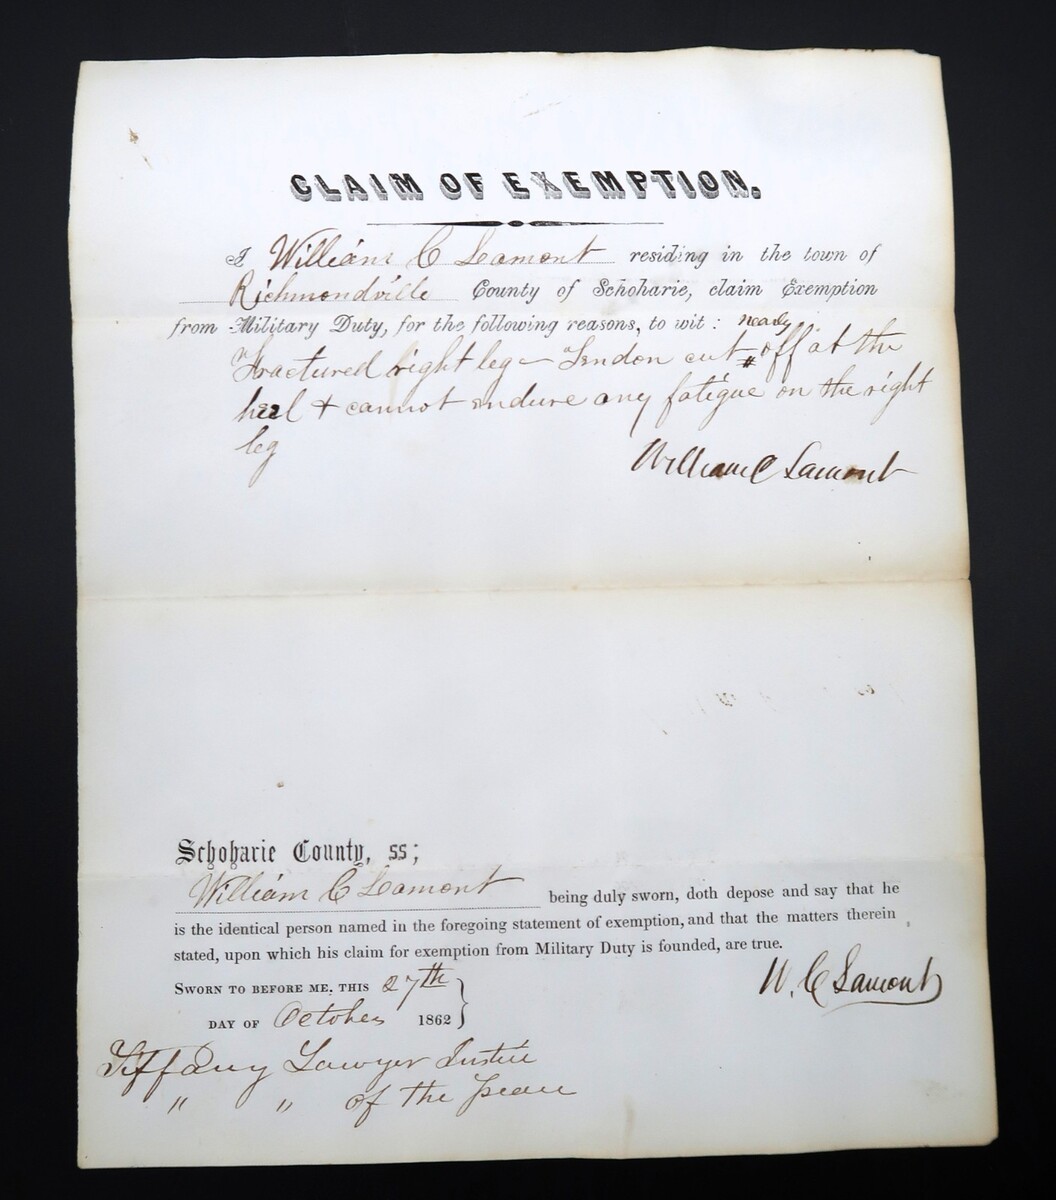 CLAIM OF EXEMPTION.
I William C Lamont residing in the town of
Richmondville County of Schoharie, claim Exemption
from Military Duty, for the following reasons, to wit :
nearly
Fractured right leg – Tendon cut off at the
heel + cannot endure any fatigue on the right
leg
William C Lamont
Schoharie County, ss;
William C Lamont being duly sworn, doth depose and say that he
is the identical person named in the foregoing statement of exemption, and that the matters therein
stated, upon which his claim for exemption from Military Duty is founded, are true.
W. C Lamont
SWORN TO BEFORE ME, THIS 27th
DAY OF October 1862
Tiffany Lawyer Justice
" " of the Peace